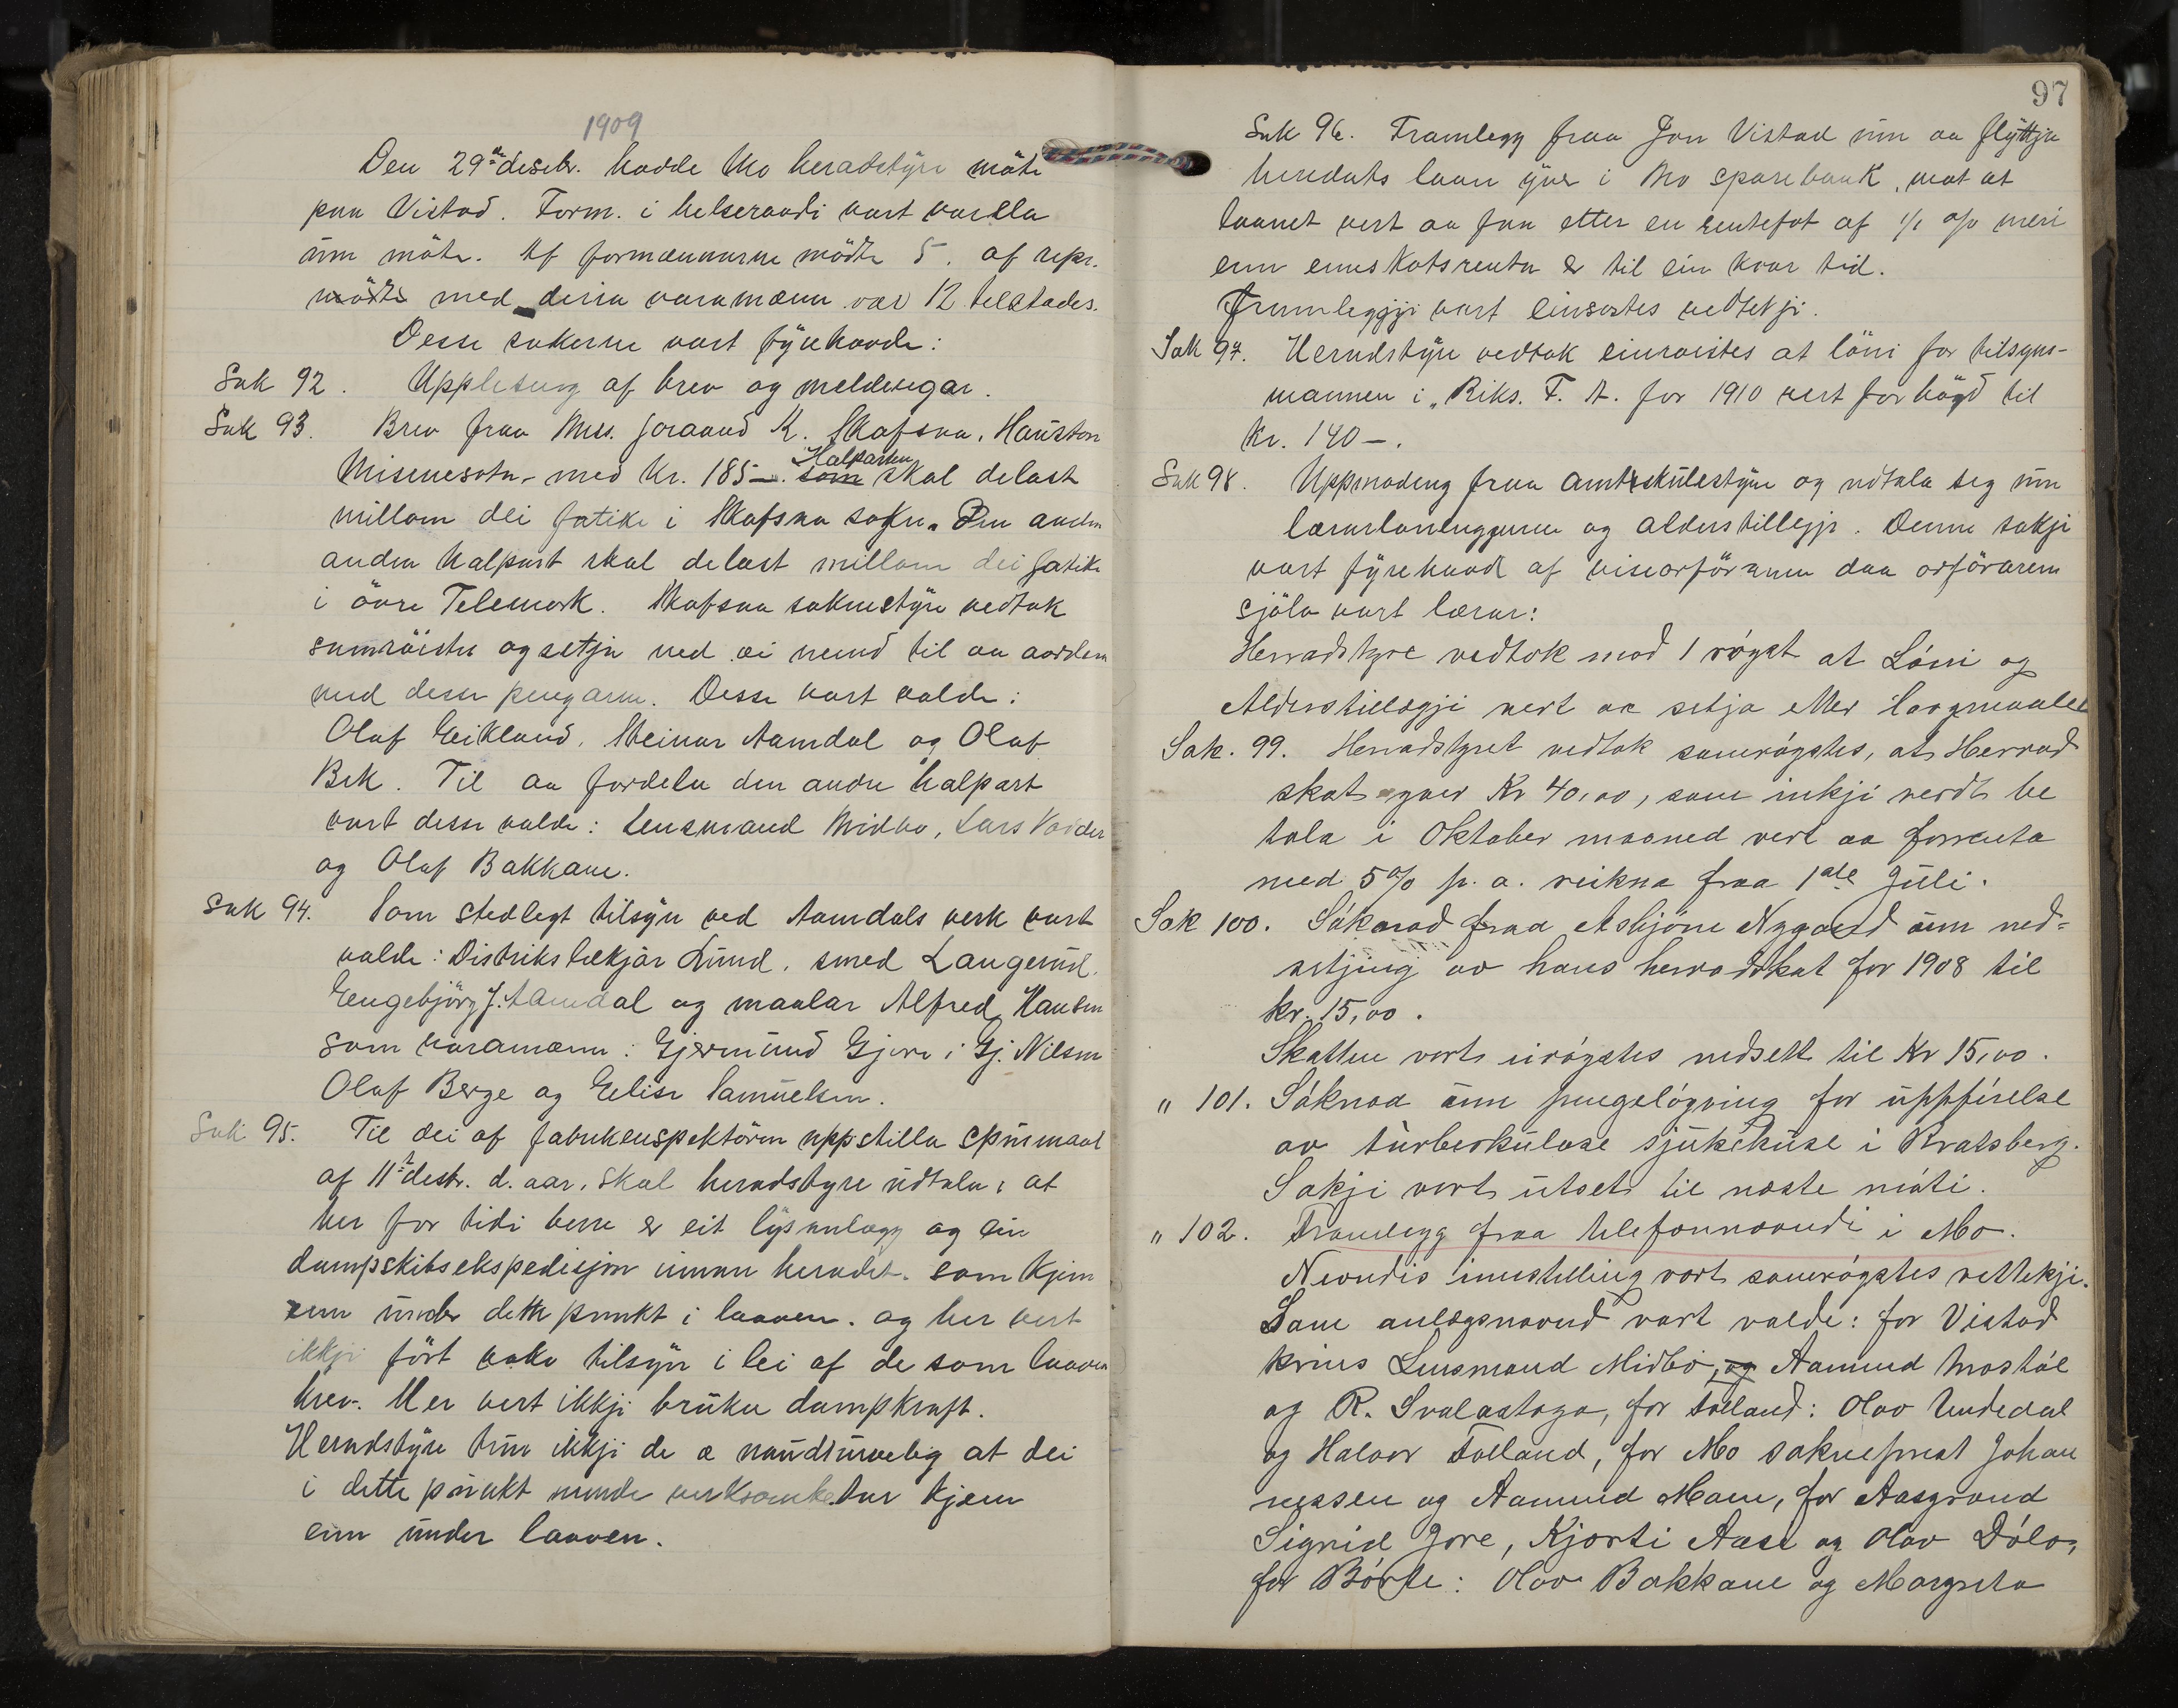 1909
Den 29de desebr. hadde Mo heradstyre möte
paa Vistad. Form. i helseraadi vart varsla
um möte. Af formænnarne mödte 5. af repr.
mödte med deira varamænn var 12 telstades.
Desse sakerne vart fyrehavde:
Sak 92. Upplesing af brev og meldingar.
Sak 93. Brev fraa Mrs. Joraand K. Skafsaa, Hauston
Misenesota, med Kr. 185-. som Halparten skal delast
millom dei fatike i Skafsaa sokn. Den andre
andra halpart skal delast millom dei fatike
i övre Telemork. Skafsaa soknestyre vedtok
samröistes og setja ned ei nemd til aa
med desse pengarne. Desse vart valde:
Olaf Eikland, Steinar Aamdal og Olaf
Bek. Til aa fordela den andre halpart
vart desse valde: Lensmand Midbø, Lars
og Olaf Bakkane.
Sak 94. Som stedlegt tilsyn ved Aamdals verk vart
valde: Distrikslækjar Lund, smed Langerud,
Engebjörg J. Aamdal og maalar Alfred Hansen
som varamænn: Gjermund Gjere i Gj. Nilsen
Olaf Berge og Elise Samuelsen.
Sak 95. Til dei af fabrikenspektören uppstilla spursmaal
af 11te desbr. d. aar, skal heradstyre udtala, at
her for tidi berre er eit lysanlegg og ein
dampskibsekspedisjon innan heradet, som kjem
inn under dette punkt i laaven. og her vert
ikkji fört noko tilsyn i lei af de som laaven
krev. Her vert ikkji bruka dampkraft.
Heradstyre trur ikkji de æ naudturvelig at dei
i dette punkt nemde verksomheter kjem
inn under laaven.
97
Sak 96. Framlegg fraa Jon Vistad um aa flyttja
heradets laan yver i Mo sparebank, mot at
laanet vert aa faa etter en rentefot af 1/2 o/o meri
enn innskotsrenta er til ein kvar tid.
Framleggji vart einsostes vedtekji.
Sak 97. Heradstyre vedtok einroistes at löni for tilsyns-
mannen i „Riks. F. A. for 1910 vert forhögd til
Kr. 140-.
Sak 98. Uppmoding fraa amtskulestyre og udtala seg um
lærarlöninggunne og alderstilleggji. Denne sakji
vart fyrehavd af viseorförarren daa orförarem
sjölv vart lærar:
Herradstyre vedtok mod 1 röyst at Löni og
Alderstillegji vert aa setja etter Lovgmaalet
Sak. 99. Herradstyret vedtok samröystes, at Herrad
skat yver Kr 40,00, som inkji verdt be
tala i Oktober maaned vert aa forrenta
med 5% p. a. reikna fraa 1ste Juli.
Sak 100. Söknad fraa Asbjörn Nygard um ned=
setjing av hans herradskat for 1908 til
kr. 15,00.
Skatten vart eiröystes nedsett til Kr 15,00.
„ 101. Söknad um pengelöyving for uppförelse
av turberkulose sjukehuse i Bratsberg.
Sakji vart utset til næste möti.
„ 102. Framlegg fraa telefonnevndi i Mo.
Nevndis innstelling vart samröystes vettekji.
Som anlegsnevnd vart valde: for Vistad
krins Lensmand Midbö, og Aamund Mostöl
og R. Svalastoga, for Folland: Olav Undedal
og Halvor Folland, for Mo sokneprest Johan
nessen og Aamund Moen, for Aasgrend
Sigrid Jore, Kjorti Aase og Olav Döle,
for Börte: Olav Bakkane og Margreta